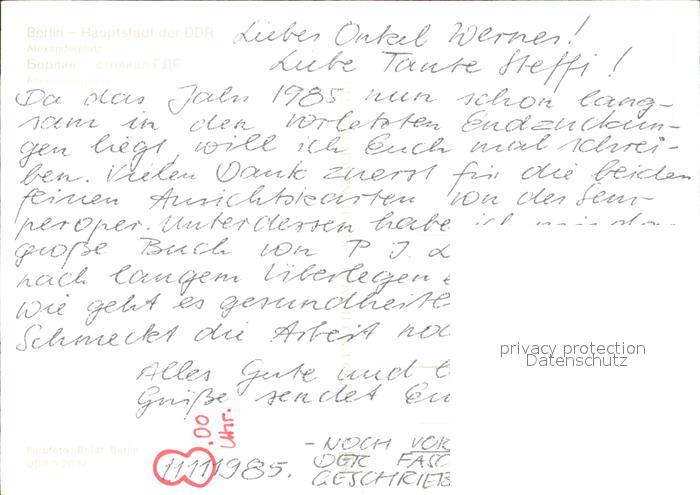 Berlin – Hauptstadt der DDR
Alexanderplatz
Берлин – столица ГДР
Liebes Onkel Werner!
Liebe Tante Steffi!
Da das Jahr 1985 nun schon lang-
sam in den vorletzten Endzuckun-
gen liegt, will ich Euch mal schrei-
ben. Vielen Dank zuerst für die beiden
feinen Ansichtskarten von der Sem-
peroper. Unterdessen habe ich
große Buch von P. J.
nach langem Überlegen
Wie geht es gesundheitl
Schmeckt die Arbeit noc
Alles Gute und
Grüße sendet Eu
- NOCH VOR
DER FASC
GESCHRIEB
11.11.1985.
8.00 Uhr.
privacy protection
Datenschutz
DDR 0,20 M